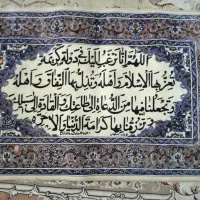 اللهم انا نرغب اليك في دولة كريمة
تعز بها الاسلام و اهله و تذل بها النفاق و اهله
و تجعلنا فيها من الدعاة الى طاعتك و القادة الى سبيلك
و ترزقنا بها كرامة الدنيا و الآخرة